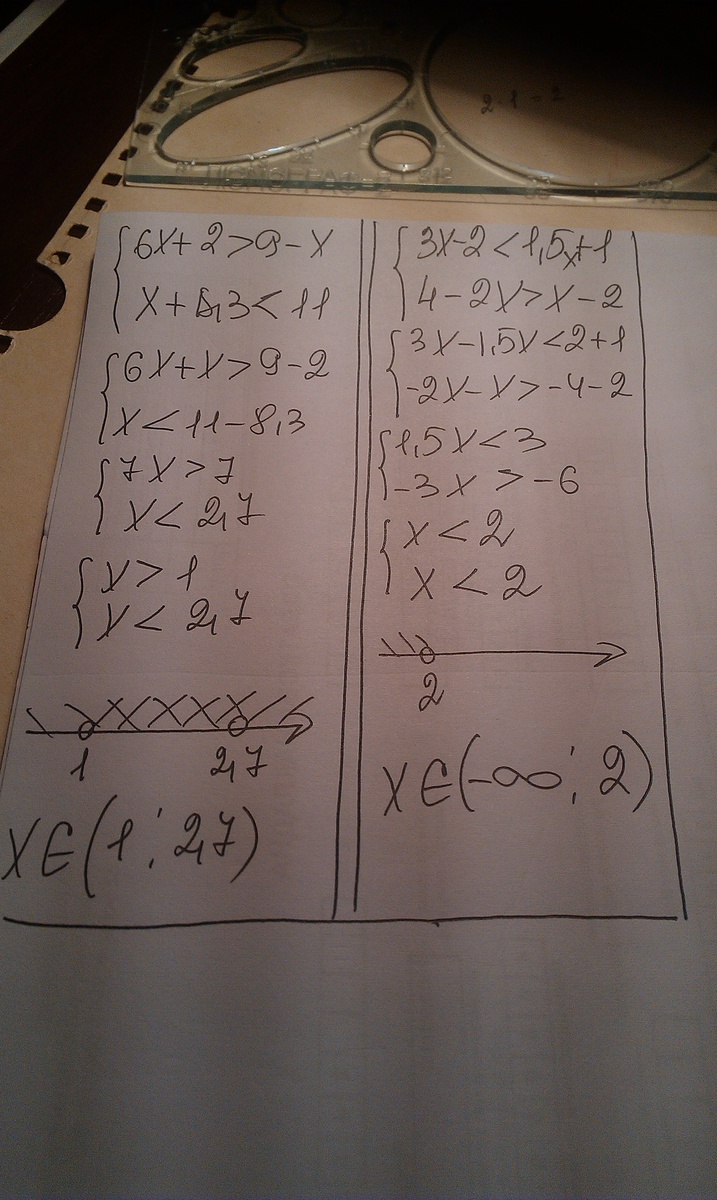 2·1=2
6x+2>9-x
x+8,3<11
6x+x>9-2
x<11-8,3
7x>7
x<2,7
x>1
x<2,7
1 2,7
x∈(1; 2,7)
3x-2<1,5x+1
4-2x>x-2
3x-1,5x<2+1
-2x-x>-4-2
1,5x<3
-3x>-6
x<2
x<2
2
x∈(-∞; 2)